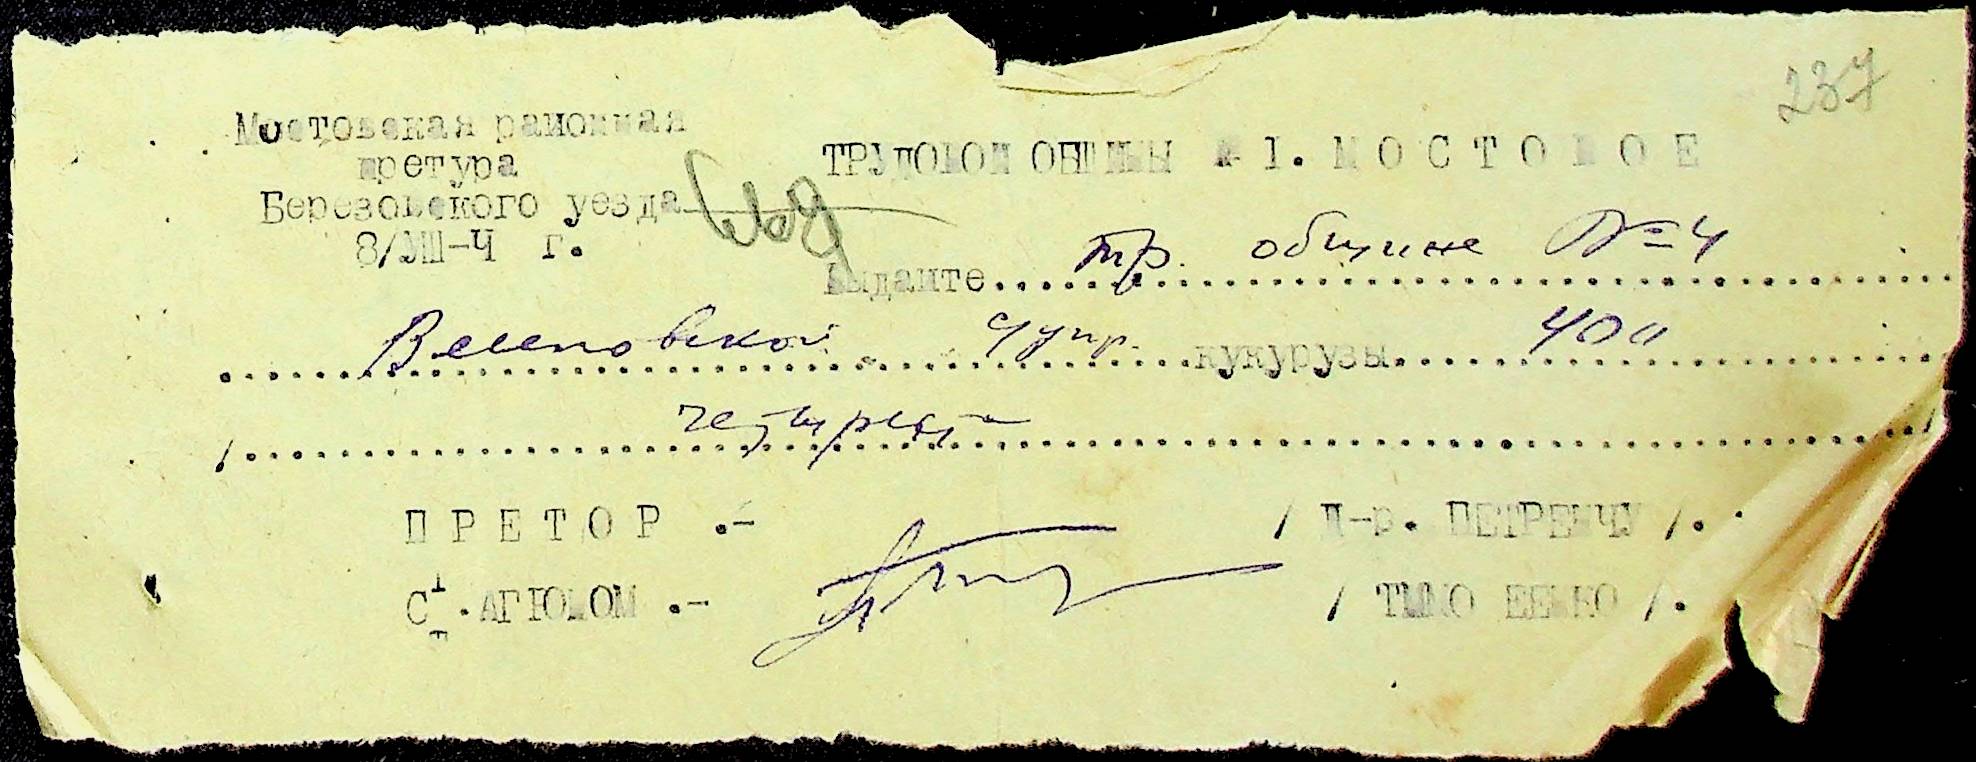 237
Мостовская районная
претура
Березовского уезда
8/УШ-4 г.
ТРУДОВОЙ ОБЩИНЫ № 1. М О С Т О В О Е
Выдайте тр. общине № 4
кукурузы 400
четыреста
П Р Е Т О Р .- / Д-р. ПЕТРЕНЧУ /.
СТ. АГРОНОМ .-